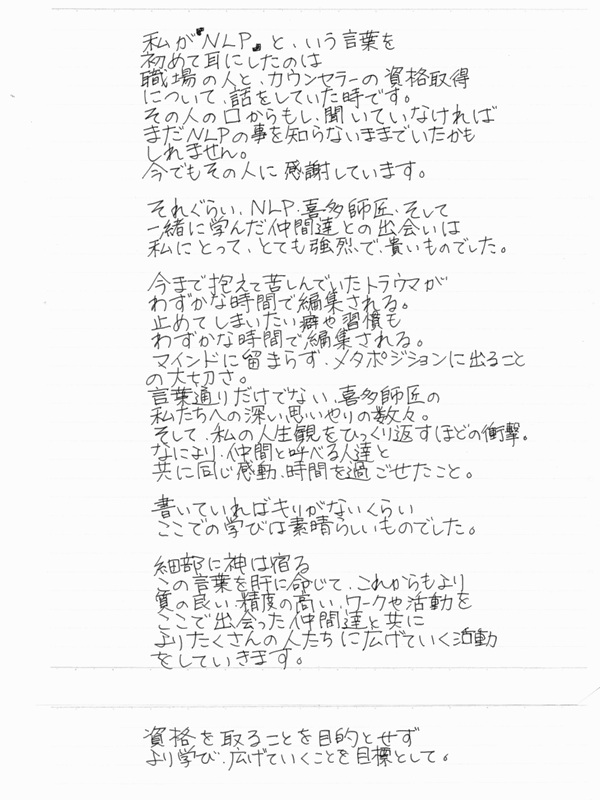 私が『NLP』と、いう言葉を
初めて耳にしたのは
職場の人と、カウンセラーの資格取得
について、話をしていた時です。
その人の口からもし、聞いていなければ
まだNLPの事を知らないままでいたかも
しれません。
今でもその人に感謝しています。
それぐらい、NLP、喜多師匠、そして
一緒に学んだ仲間達との出会いは
私にとって、とても強烈で、貴いものでした。
今まで抱えて苦しんでいたトラウマが
わずかな時間で編集される。
止めてしまいたい癖や習慣も
わずかな時間で編集される。
マインドに留まらず、メタポジションに出ること
の大切さ。
言葉通りだけでない、喜多師匠の
私たちへの深い思いやりの数々。
そして、私の人生観をひっくり返すほどの衝撃。
なにより、仲間と呼べる人達と
共に同じ感動、時間を過ごせたこと。
書いていればキリがないくらい
ここでの学びは素晴らしいものでした。
細部に神は宿る
この言葉を肝に命じて、これからもより
質の良い、精度の高い、ワークや活動を
ここで出会った仲間達と共に
よりたくさんの人たちに広げていく活動
をしていきます。
資格を取ることを目的とせず
より学び、広げていくことを目標として。